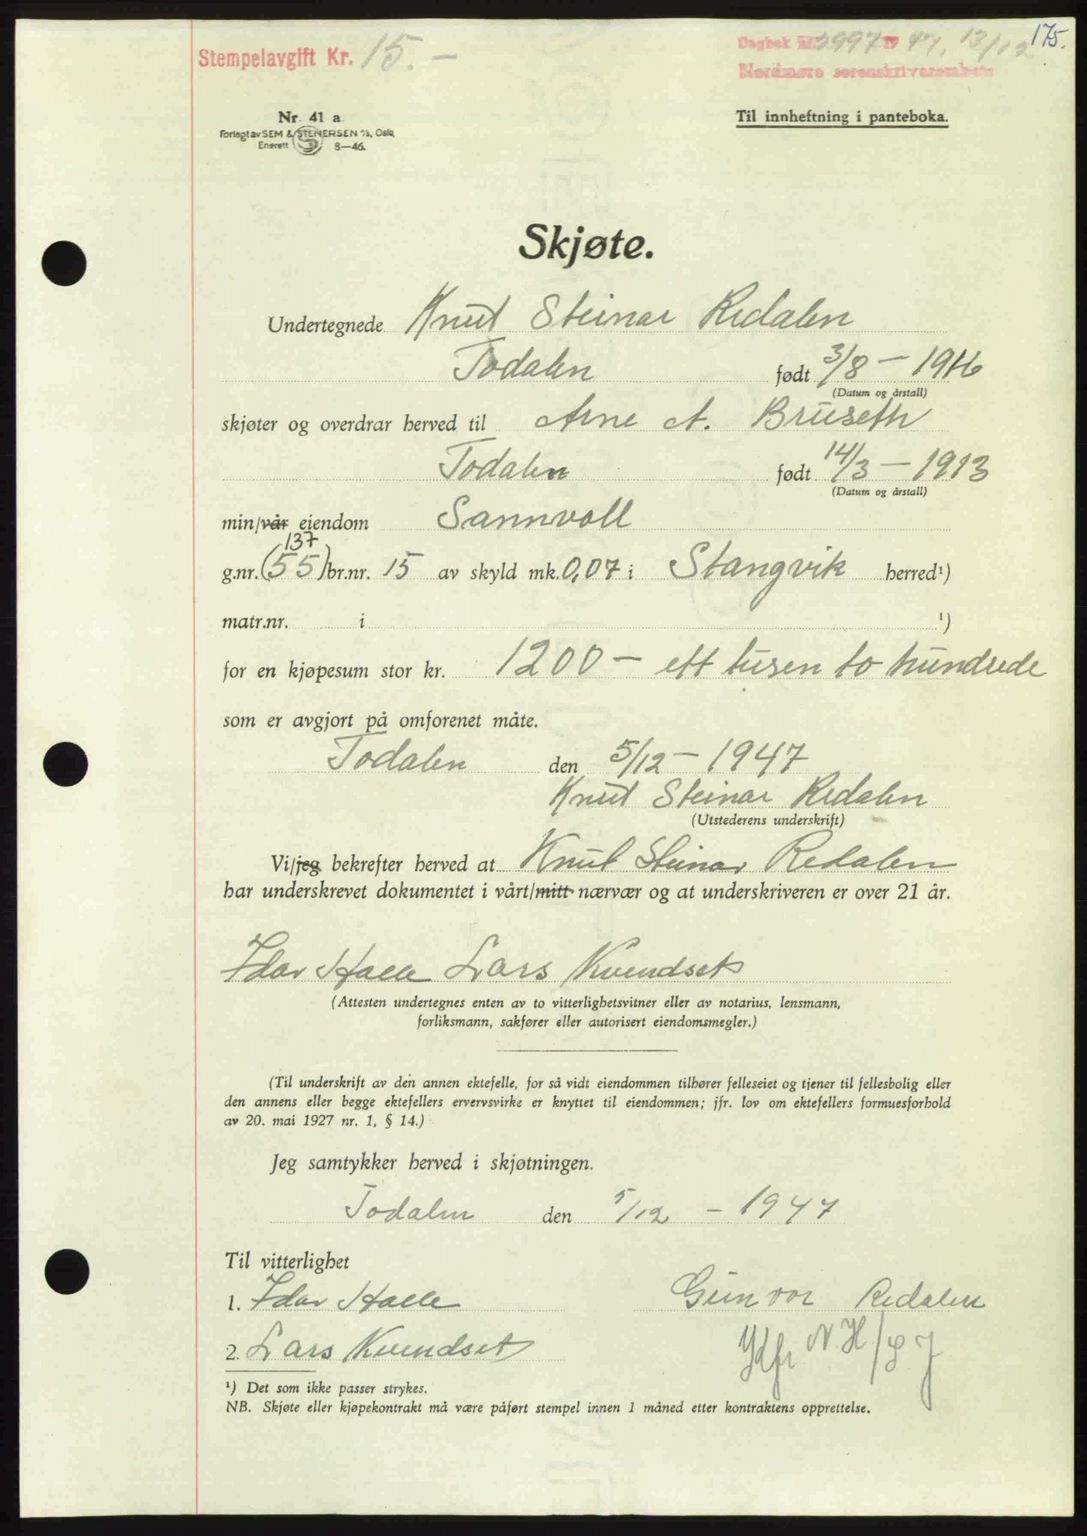 175.
Stempelavgift Kr. 15.—
Dagbok nr. 3997 1947, 13/12
Nordmøre sorenskriverembete
Nr. 41 a.
Forlagt av SEM & STENERSEN A/S, Oslo
Enerett 8—46.
Til innheftning i panteboka.
Skjøte.
Undertegnede Knut Steinar Redalen
Todalen født 3/8 — 1916
(Datum og årstall)
skjøter og overdrar herved til Arne A. Bruseth
Todalen født 14/3 — 1913
(Datum og årstall)
min/vår eiendom Sannvoll
137
g.nr. (55) br.nr. 15 av skyld mk. 0,07 i Stangvik herred¹)
matr.nr. i ¹)
for en kjøpesum stor kr. 1200 — ett tusen to hundrede
som er avgjort på omforenet måte.
Todalen den 5/12 — 1947
Knut Steinar Redalen
(Utstederens underskrift)
Vi/jeg bekrefter herved at Knut Steinar Redalen
har underskrevet dokumentet i vårt/mitt nærvær og at underskriveren er over 21 år.
Idar Halle Lars Kvendset
(Attesten undertegnes enten av to vitterlighetsvitner eller av notarius, lensmann,
forliksmann, sakfører eller autorisert eiendomsmegler.)
(Til underskrift av den annen ektefelle, for så vidt eiendommen tilhører felleseiet og tjener til fellesbolig eller
den annens eller begge ektefellers ervervsvirke er knyttet til eiendommen; jfr. lov om ektefellers formuesforhold
av 20. mai 1927 nr. 1, § 14.)
Jeg samtykker herved i skjøtningen.
Todalen den 5/12 — 1947
Til vitterlighet
1. Idar Halle Gunvor Redalen
2. Lars Kvendset
¹) Det som ikke passer strykes.
NB. Skjøte eller kjøpekontrakt må være påført stempel innen 1 måned etter kontraktens opprettelse.